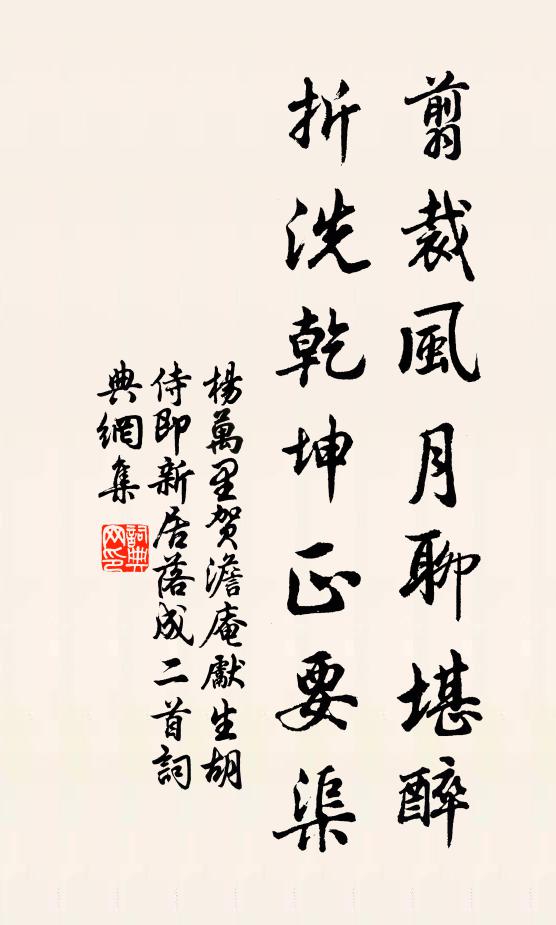 翦裁風月聊堪醉
折洗乾坤正要渠
楊萬里賀澹庵獻生胡
侍即新居落成二首詞
典網集
詞典
网印